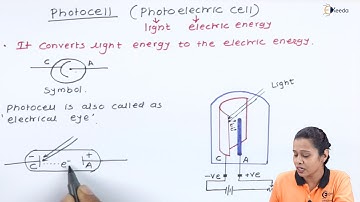 Photocell (Photoelectric cell)
light electric energy
• It converts light energy to the electric energy.
C A
Symbol.
Photocell is also called as
'electrical eye'.
- +
C e⁻ A
Light
C A
-ve +ve